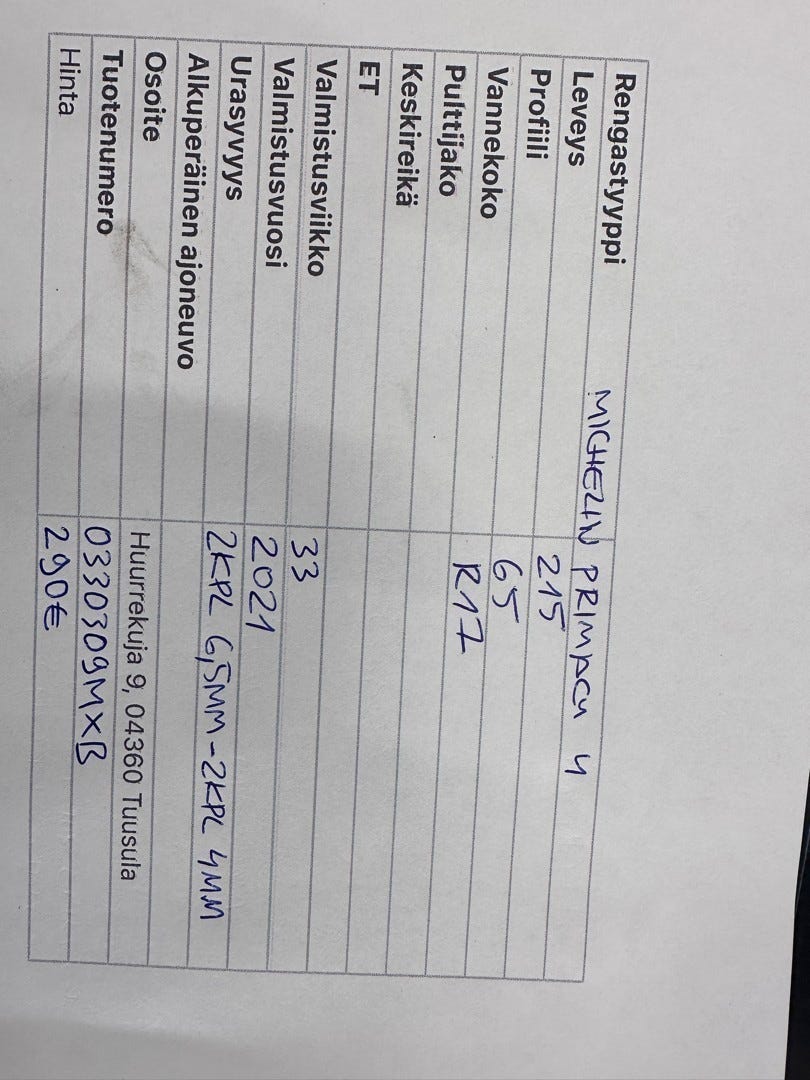 Rengastyyppi MICHELIN PRIMACY 4
Leveys 215
Profiili 65
Vannekoko R17
Pulttijako
Keskireikä
ET
Valmistusviikko 33
Valmistusvuosi 2021
Urasyvyys 2KPL 6,5MM-2KPL 4MM
Alkuperäinen ajoneuvo
Osoite Huurrekuja 9, 04360 Tuusula
Tuotenumero 0330309MXB
Hinta 290€